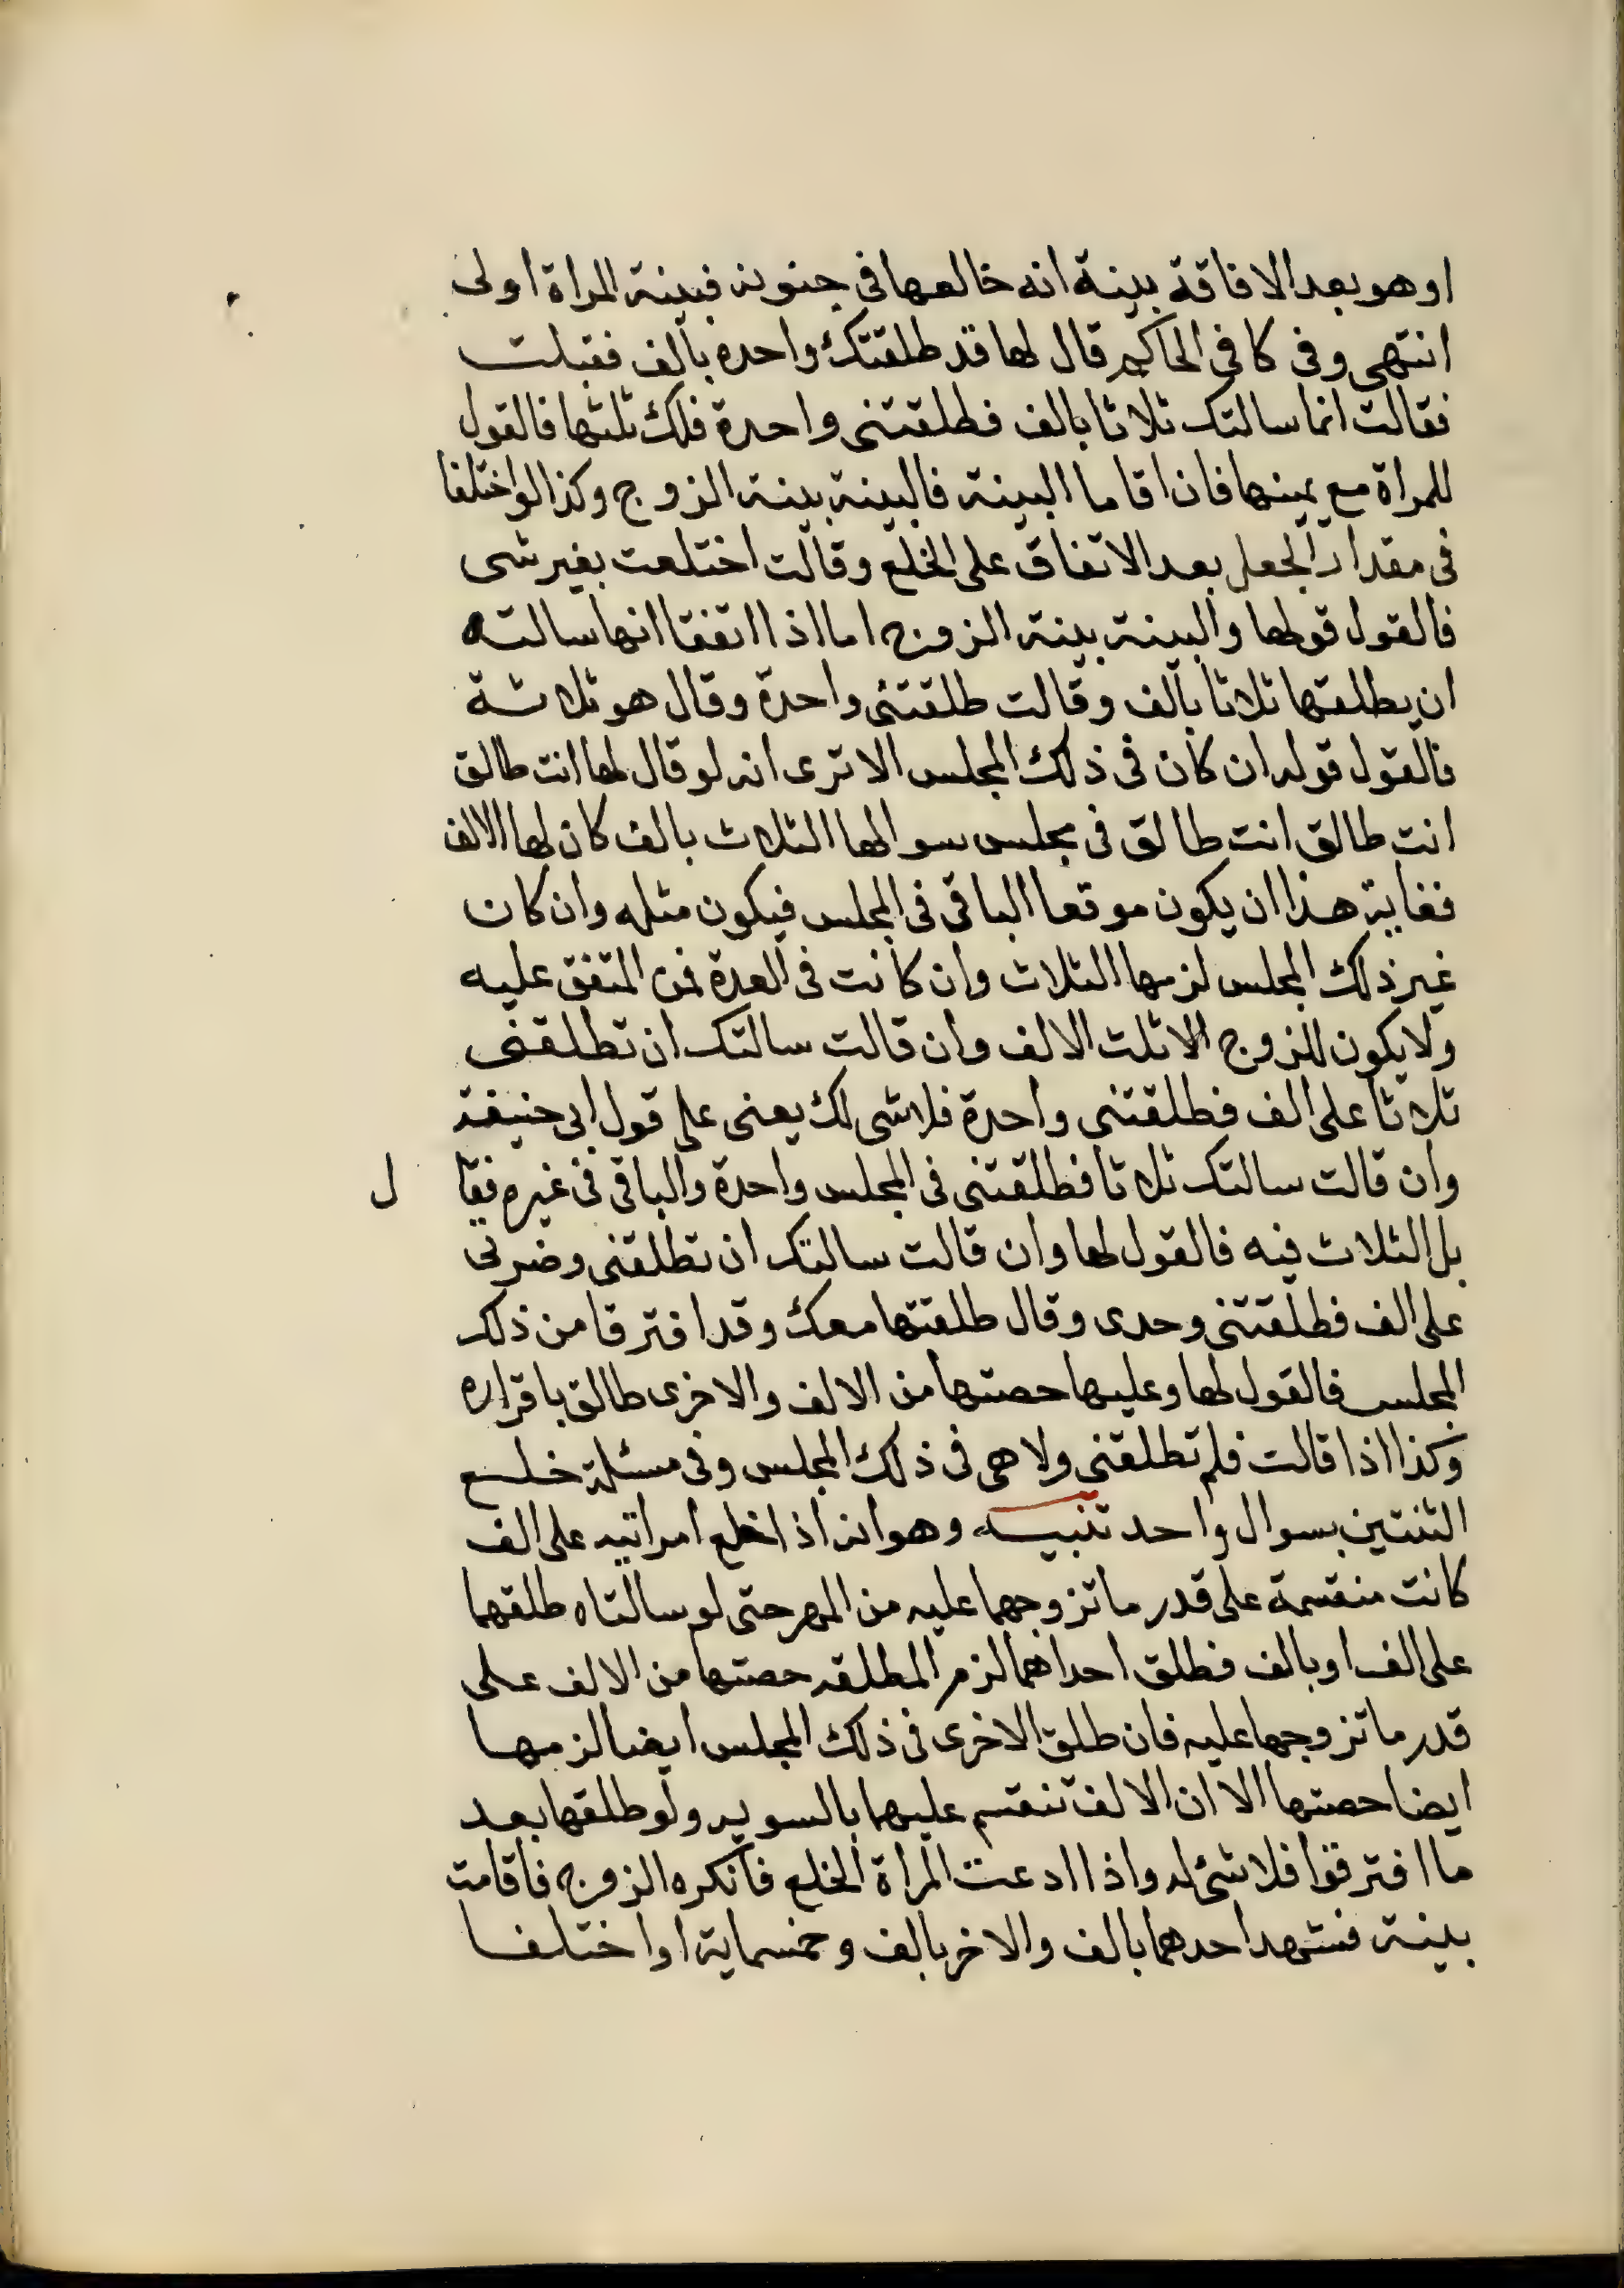 او هو بعد الافاقة بينة انه خالعها فى جنونه فبينة المراة اولى
انتهى وفى كافى الحاكم قال لها قد طلقتك واحدة بالف فقبلت
فقالت انما سالتك ثلاثا بالف فطلقتنى واحدة فلك ثلثها فالقول
للمراة مع يمينها فان اقاما البينة فالبينة بينة الزوج وكذا لو اختلفا
فى مقدار الجعل بعد الاتفاق على الخلع وقالت اختلعت بغير شى
فالقول قولها والبينة بينة الزوج اما اذا اتفقا انها سالته
ان يطلقها ثلاثا بالف وقالت طلقتنى واحدة وقال هو ثلاثة
فالقول قوله ان كان فى ذلك المجلس الا ترى انه لو قال لها انت طالق
انت طالق انت طالق فى مجلس سوالها الثلاث بالف كان لها الالف
فغاية هذا ان يكون موقعا الباقى فى المجلس فيكون مثله وان كان
غير ذلك المجلس لزمها الثلاث وان كانت فى العدة فمن المتفق عليه
ولا يكون للزوج الا ثلث الالف وان قالت سالتك ان تطلقنى
ثلاثا على الف فطلقتنى واحدة فلا شى لك يعنى على قول ابى حنيفة
وان قالت سالتك ثلاثا فطلقتنى فى المجلس واحدة والباقى فى غيره فقا ل
بل الثلاث فيه فالقول لها وان قالت سالتك ان تطلقنى وضرتى
على الف فطلقتنى وحدى وقال طلقتها معك وقد افترقا من ذلك
المجلس فالقول لها وعليها حصتها من الالف والاخرى طالق باقراره
وكذا اذا قالت فلم تطلقنى ولا هى فى ذلك المجلس وفى مسئلة خلع
الثنتين بسوال واحد تنبيه وهو انه اذا خلع امراتيه على الف
كانت منقسمة على قدر ما تزوجهما عليه من المهر حتى لو سالتاه طلقهما
على الف او بالف فطلق احداهما لزم المطلقه حصتها من الالف على
قدر ما تزوجها عليه فان طلق الاخرى فى ذلك المجلس ايضا لزمها
ايضا حصتها الا ان الالف تنقسم عليهما بالسويه ولو طلقها بعد
ما افترقوا فلا شئ له واذا ادعت المراة الخلع فانكره الزوج فاقامت
بينة فشهد احدهما بالف والاخر بالف وخمسماية او اختلفا